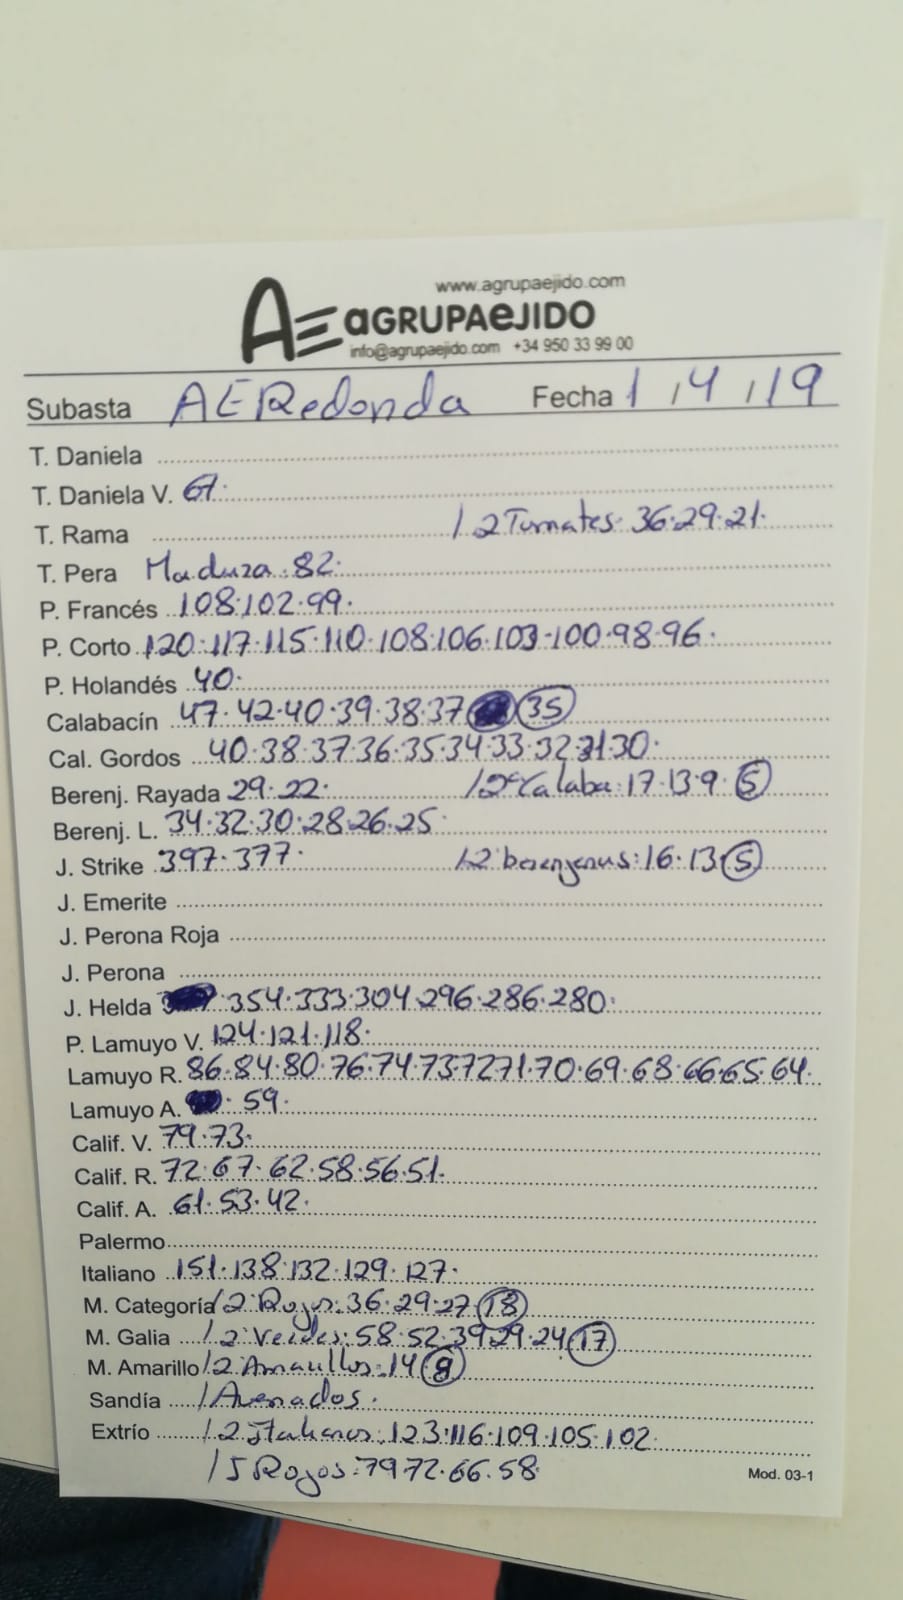 www.agrupaejido.com
AE aGRUPAeJIDO
info@agrupaejido.com +34 950 33 99 00
Subasta AE Redonda Fecha 1 / 4 / 19
T. Daniela
T. Daniela V. 67.
T. Rama / 2 Tomates. 36.29.21.
T. Pera Maduza. 82.
P. Francés 108.102.99.
P. Corto 120.117.115.110.108.106.103-100.98.96.
P. Holandés 40.
Calabacín 47.42.40.39.38.37 (35)
Cal. Gordos 40.38.37.36.35.34.33.32.31.30.
Berenj. Rayada 29.22. / 2ª Calaba: 17.13.9. (5)
Berenj. L. 34.32.30.28.26.25.
J. Strike 397.377. / 2 berenjenas: 16.13 (5)
J. Emerite
J. Perona Roja
J. Perona
J. Helda 354.333.304.296.286.280.
P. Lamuyo V. 124.121.118.
Lamuyo R. 86.84.80.76.74.73.72.71.70.69.68.66.65.64.
Lamuyo A. . 59.
Calif. V. 79.73.
Calif. R. 72.67.62.58.56.51.
Calif. A. 61.53.42.
Palermo
Italiano 151.138.132.129.127.
M. Categoría / 2 Rojos: 36.29.27. (18)
M. Galia / 2 Verdes: 58.52.39.29.24 (17)
M. Amarillo / 2 Amarillos: 14 (8)
Sandía / Asenados.
Extrío / 2 Italianos: 123.116.109.105.102.
/ J Rojos: 79.72.66.58.
Mod. 03-1